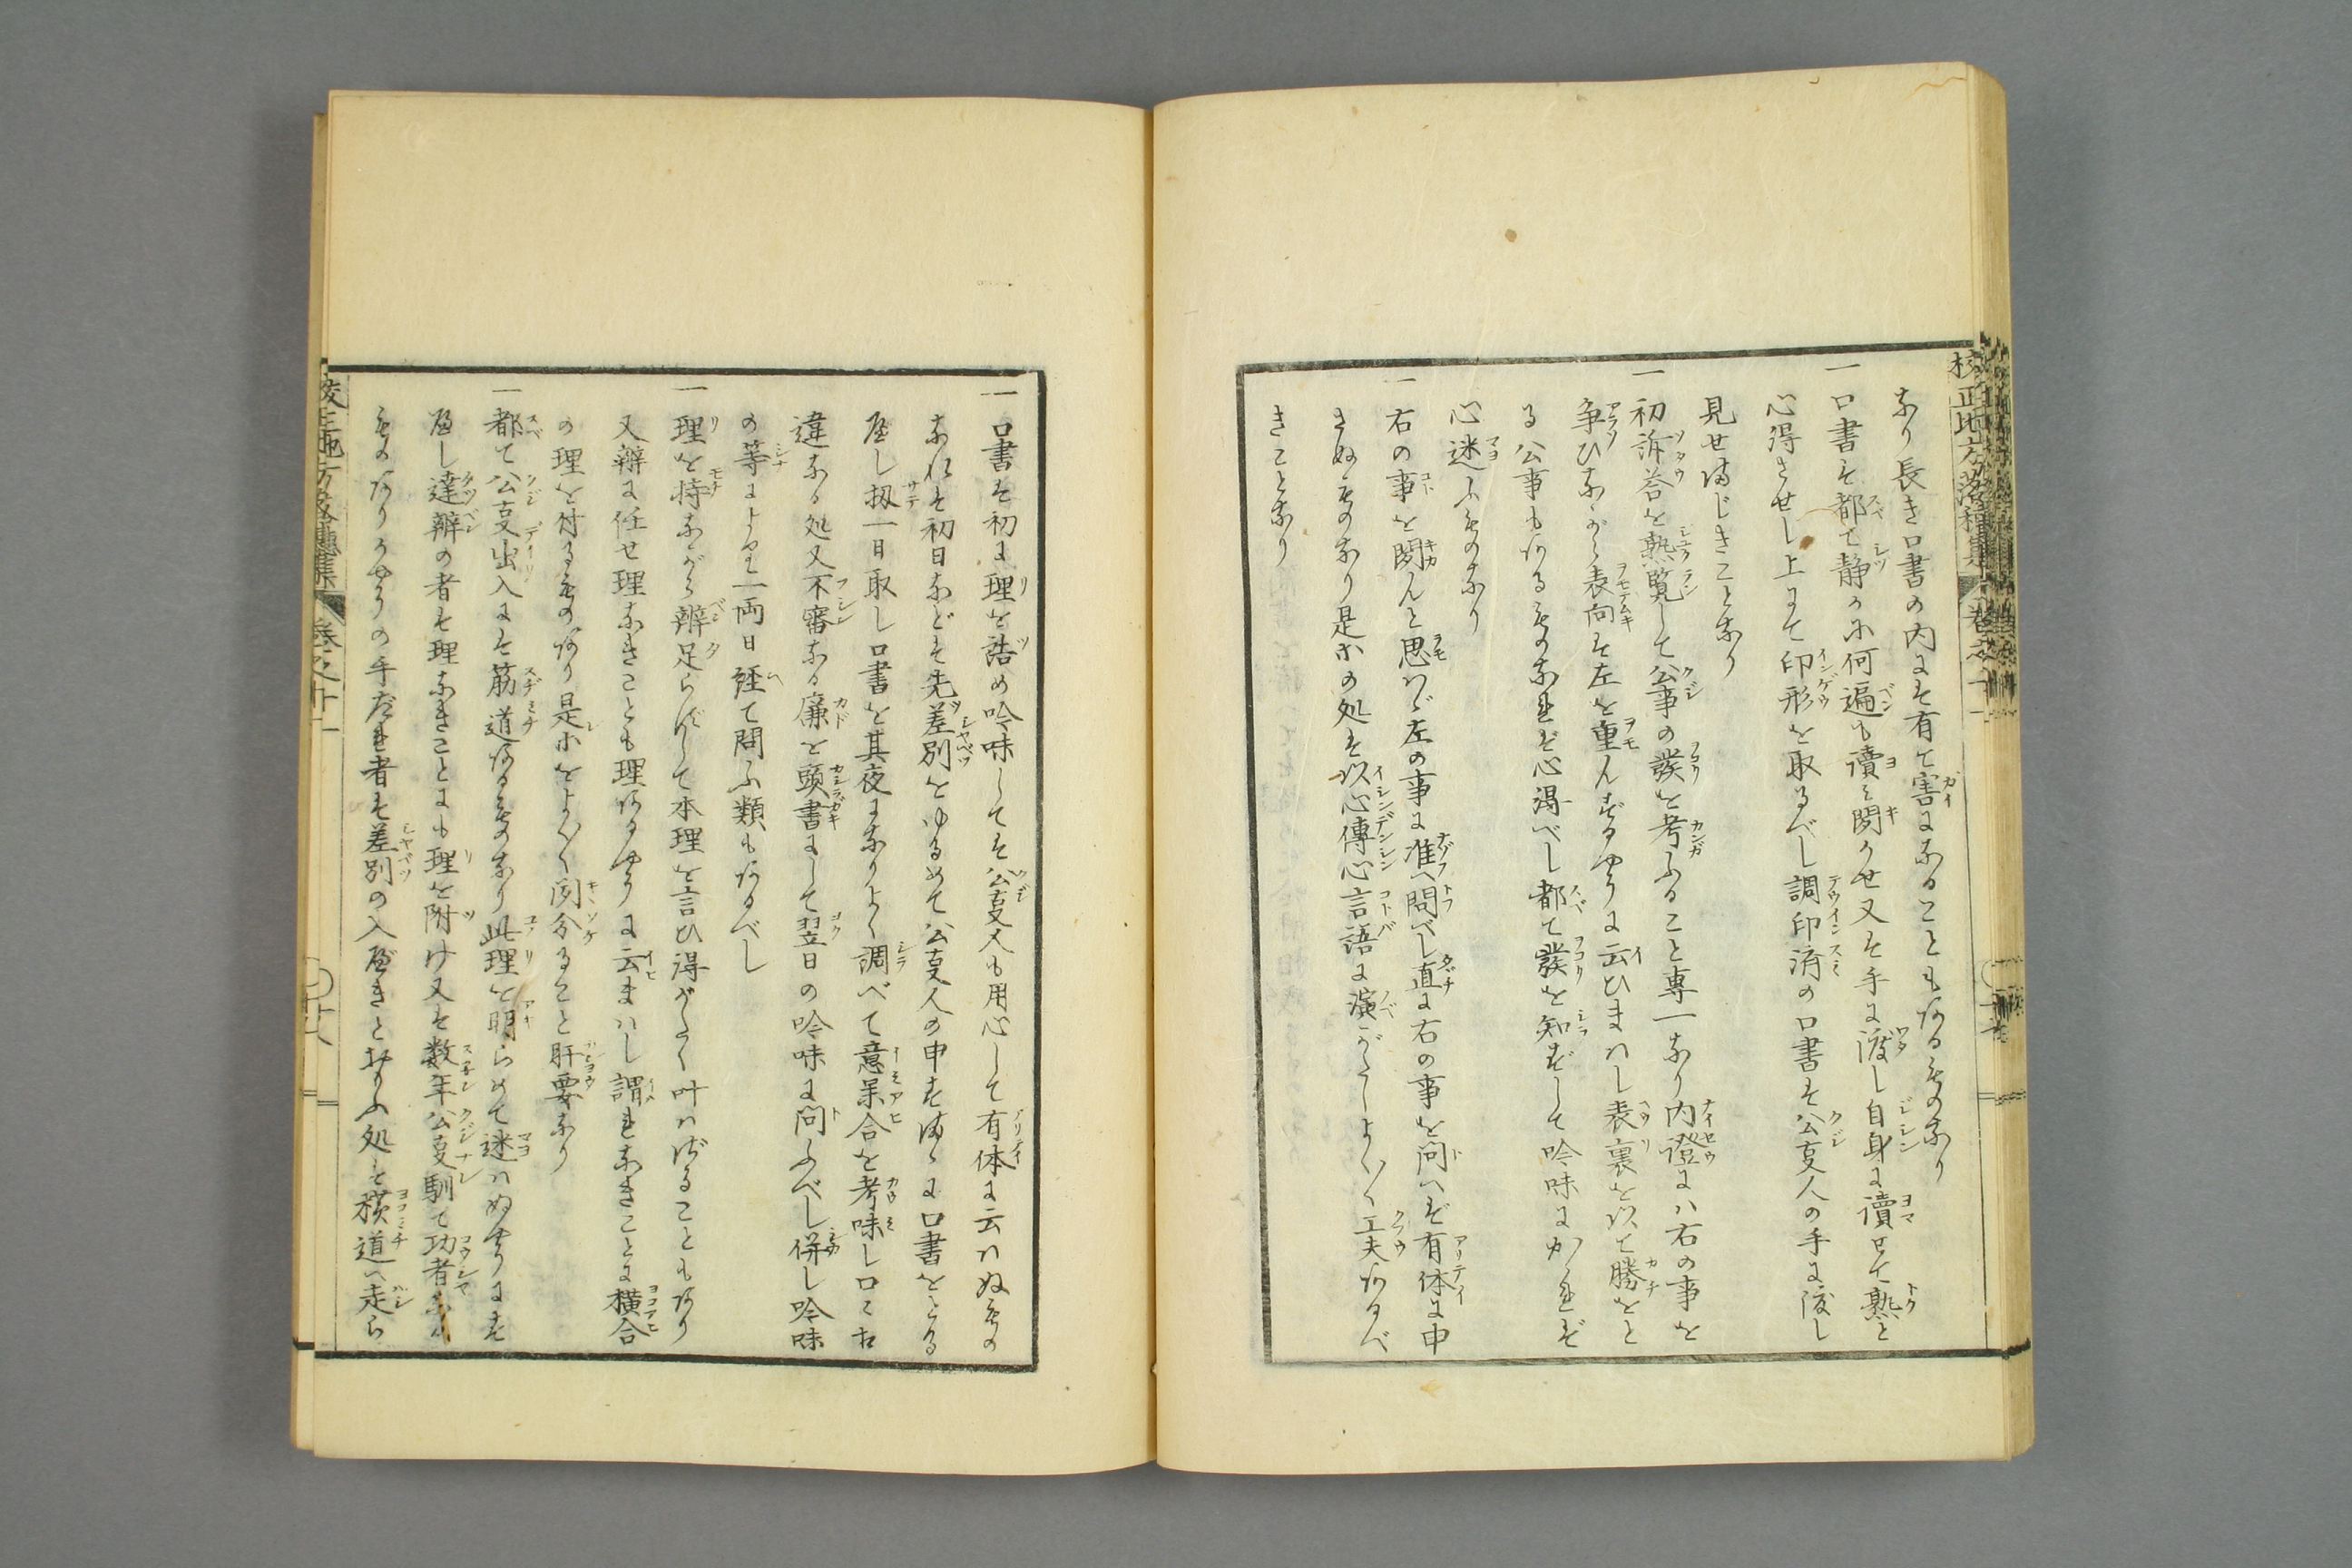 校正地方落穂集 巻之十一
なり長き口書の内には有て害になることもあるものなり
一口書は都て静かに何遍も讀み聞かせ又は手に渡し自身に讀せて熟と
心得させし上にて印形を取るべし調印済の口書は公事人の手に渡し
見せまじきことなり
一初訴答を熟覧して公事の發を考ふること専一なり内證にハ右の事を
争ひながら表向は左を重んずるやうに云ひまハし表裏を以て勝をと
る公事もあるものなれば心得べし都て發を知ずして吟味にかゝれば
心迷ふものなり
一右の事を聞んと思ハゞ左の事に准へ問べし直に右の事を問ヘば有体に申
さぬものなり是等の処は以心傳心言語に演がたしよく〳〵工夫あるべ
きことなり
一口書は初に理を詰め吟味しては公事人も用心して有体に云ハぬもの
なれは初日などは先差別をゆるめて公事人の申すまゝに口書をとる
べし扨一日取し口書を其夜になりよく調べて意味合を考味し口々相
違なる処又不審なる廉を頭書にして翌日の吟味に問ふべし併し吟味
の等により一両日経て問ふ類もあるべし
一理を持ながら辨足らずして本理を言ひ得がたく叶ハざることもあり
又辨に任せ理なきことも理あるやうに云まハし謂れなきことに横合
の理を付るものあり是等をよく〳〵聞分ること肝要なり
一都て公事出入には筋道あるものなり此理を明らめて迷ハぬやうにす
べし達辨の者は理なきことにも理を附け又は数年公事馴て功者なる
ものありかやうの手だれ者は差別の入べきと思ふ処を横道へ走ら
校正地方落穂集 巻之十一 廿八